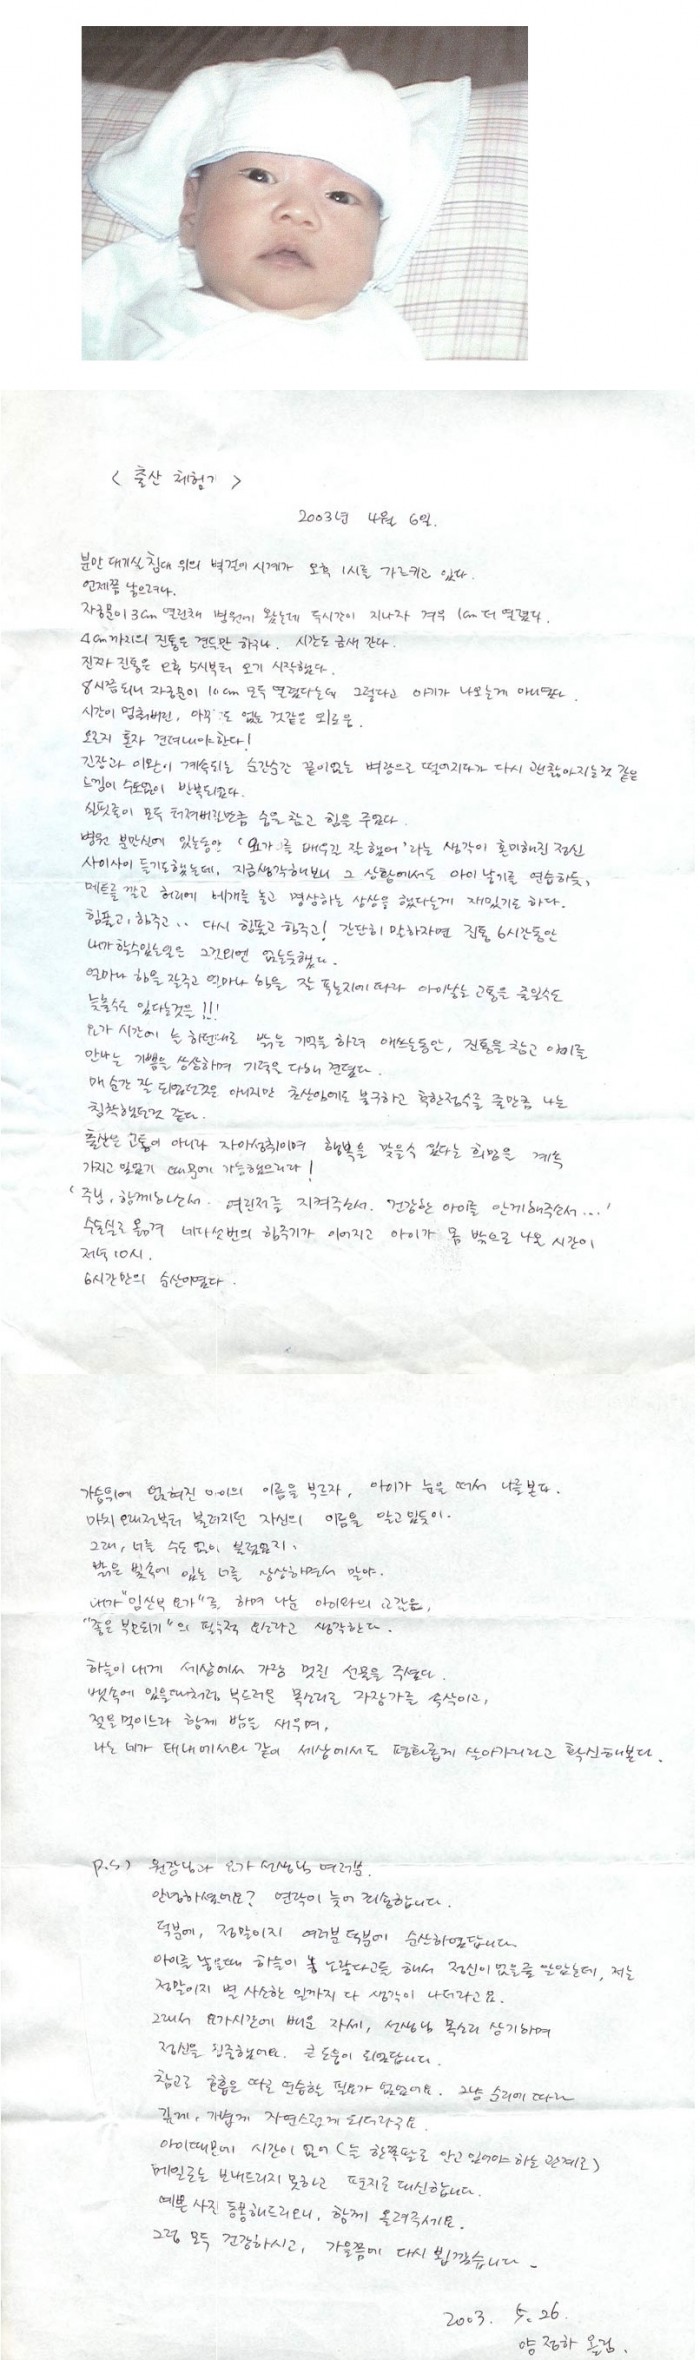 < 출산 체험기 >
2003년 4월 6일.
분만 대기실 침대 위의 벽걸이 시계가 오후 1시를 가르키고 있다.
언제쯤 낳으려나.
자궁문이 3cm 열린채 병원에 왔는데 두시간이 지나자 겨우 1cm 더 열렸다.
4cm까지의 진통은 견딜만 하구나. 시간도 금새 간다.
진짜 진통은 오후 5시부터 오기 시작했다.
8시쯤되니 자궁문이 10cm 모두 열렸다는데 그렇다고 아기가 나오는게 아니였다.
시간이 멈춰버린, 아무도 없는 것같은 외로움.
오로지 혼자 견뎌내야한다!
긴장과 이완이 계속되는 순간순간 끝이없는 벼랑으로 떨어지다가 다시 괜찮아지는것 같은
느낌이 수도없이 반복되었다.
실핏줄이 모두 터져버릴만큼 숨을 참고 힘을 주었다.
병원 분만실에 있는동안 '요가를 배우길 잘 했어'라는 생각이 혼미해진 정신
사이사이 들기도했는데, 지금생각해보니 그 상황에서도 아이 낳기를 연습하듯,
매트를 깔고 허리에 베개를 놓고 명상하는 상상을 했다는게 재밌기도 하다.
힘풀고, 힘주고.. 다시 힘풀고 힘주고! 간단히 말하자면 진통 6시간동안
내가 할수있는일은 그것외엔 없는듯했다.
얼마나 힘을 잘주고 얼마나 힘을 잘 푸는지에 따라 아이낳는 고통을 줄일수도
늦출수도 있다는것을!!!
요가 시간에 늘 하던대로 밝은 기억을 하려 애쓰는동안, 진통을 참고 아이를
만나는 기쁨을 상상하며 기력을 다해 견뎠다.
매 순간 잘 되었던것은 아니지만 초산임에도 불구하고 후한점수를 줄만큼 나는
침착했던것 같다.
출산은 고통이 아니라 자아성취이며 행복을 맞을수 있다는 희망을 계속
가지고 있었기 때문에 가능했으리라!
'주님, 함께하소서. 여린저를 지켜주소서. 건강한 아이를 안게해주소서...'
수술실로 옮겨 네다섯번의 힘주기가 이어지고 아이가 몸 밖으로 나온 시간이
저녁 10시.
6시간만의 순산이였다.
가슴위에 얹혀진 아이의 이름을 부르자, 아이가 눈을 떠서 나를본다.
마치 오래전부터 불려지던 자신의 이름을 알고 있듯이.
그래, 너를 수도 없이 불렀었지.
밝은 빛속에 있는 너를 상상하면서 말야.
내가 "임산부 요가"를 하며 나눈 아이와의 교감은,
"좋은 부모되기"의 필수적 요소라고 생각한다.
하늘이 내게 세상에서 가장 멋진 선물을 주셨다.
뱃속에 있을때처럼 부드러운 목소리로 자장가를 속삭이고,
젖을 먹이느라 함께 밤을 새우며,
나는 네가 태내에서와 같이 세상에서도 평화롭게 살아가리라고 확신해본다.
P.S) 원장님과 요가 선생님 여러분.
안녕하셨어요? 연락이 늦어 죄송합니다.
덕분에, 정말이지 여러분 덕분에 순산하였답니다.
아이를 낳을때 하늘이 노랗다고들 해서 정신이 없을줄 알았는데, 저는
정말이지 별 사소한 일까지 다 생각이 나더라고요.
그래서 요가시간에 배운 자세, 선생님 목소리 상기하며
정신을 집중했어요. 큰 도움이 되었답니다.
참고로 호흡은 따로 연습할 필요가 없었어요. 그냥 순리에 따라
깊게, 가볍게 자연스럽게 되더라구요.
아이때문에 시간이 없어 (늘 한쪽팔로 안고 있어야 하는 관계로)
메일로는 보내드리지 못하고 편지로 대신합니다.
예쁜 사진 동봉해드리오니, 함께 올려주세요.
그럼 모두 건강하시고, 가을쯤에 다시 뵙겠습니다.
2003. 5. 26.
양정하 올림.